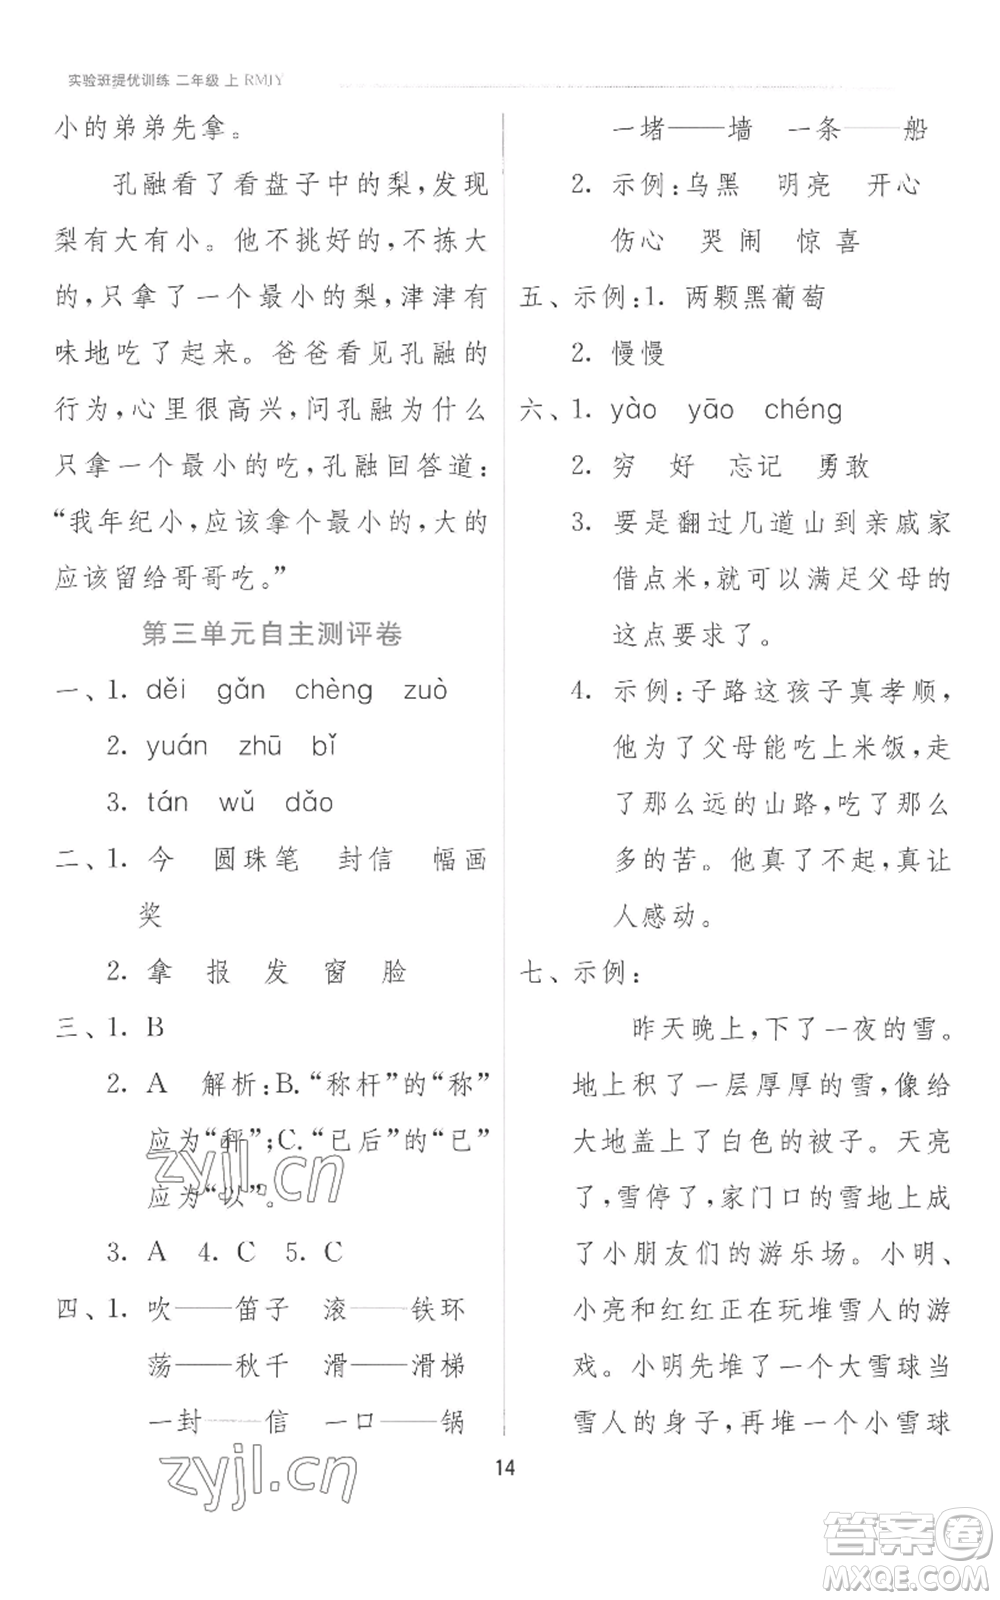 实验班提优训练 二年级 上 RMJY
小的弟弟先拿。
孔融看了看盘子中的梨,发现
梨有大有小。他不挑好的,不拣大
的,只拿了一个最小的梨,津津有
味地吃了起来。爸爸看见孔融的
行为,心里很高兴,问孔融为什么
只拿一个最小的吃,孔融回答道:
“我年纪小,应该拿个最小的,大的
应该留给哥哥吃。”
第三单元自主测评卷
一、1. děi gǎn chèng zuò
2. yuán zhū bǐ
3. tán wǔ dǎo
二、1. 今 圆珠笔 封信 幅画
奖
2. 拿 报 发 窗 脸
三、1. B
2. A 解析:B.“称杆”的“称”
应为“秤”;C.“已后”的“已”
应为“以”。
3. A 4. C 5. C
四、1. 吹——笛子 滚——铁环
荡——秋千 滑——滑梯
一封——信 一口——锅
一堵——墙 一条——船
2. 示例:乌黑 明亮 开心
伤心 哭闹 惊喜
五、示例:1. 两颗黑葡萄
2. 慢慢
六、1. yào yāo chéng
2. 穷 好 忘记 勇敢
3. 要是翻过几道山到亲戚家
借点米,就可以满足父母的
这点要求了。
4. 示例:子路这孩子真孝顺,
他为了父母能吃上米饭,走
了那么远的山路,吃了那么
多的苦。他真了不起,真让
人感动。
七、示例:
昨天晚上,下了一夜的雪。
地上积了一层厚厚的雪,像给
大地盖上了白色的被子。天亮
了,雪停了,家门口的雪地上成
了小朋友们的游乐场。小明、
小亮和红红正在玩堆雪人的游
戏。小明先堆了一个大雪球当
雪人的身子,再堆一个小雪球
14
zyjl.cn
zyjl.cn
答案卷
MXQE.COM